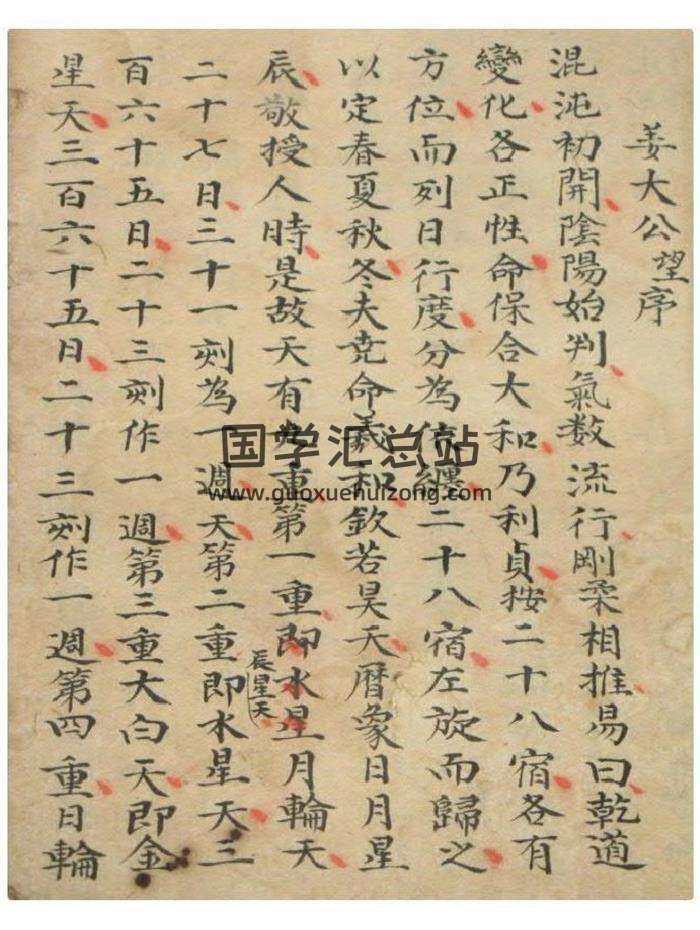 姜大公望序
混沌初開陰陽始判氣数流行剛柔相推易曰乾道
變化各正性命保合大和乃利貞按二十八宿各有
方位而列日行度分為纏二十八宿左旋而歸之
以定春夏秋冬夫尭命羲和欽若昊天曆象日月星
辰敬授人時是故天有重第一重即水星月輪天
辰星天
二十七日三十一刻為一週天第二重即水星天三
百六十五日二十三刻作一週第三重大白天即金
星天三百六十五日二十三刻作一週第四重日輪
国学汇总站
www.guoxuehuizong.com